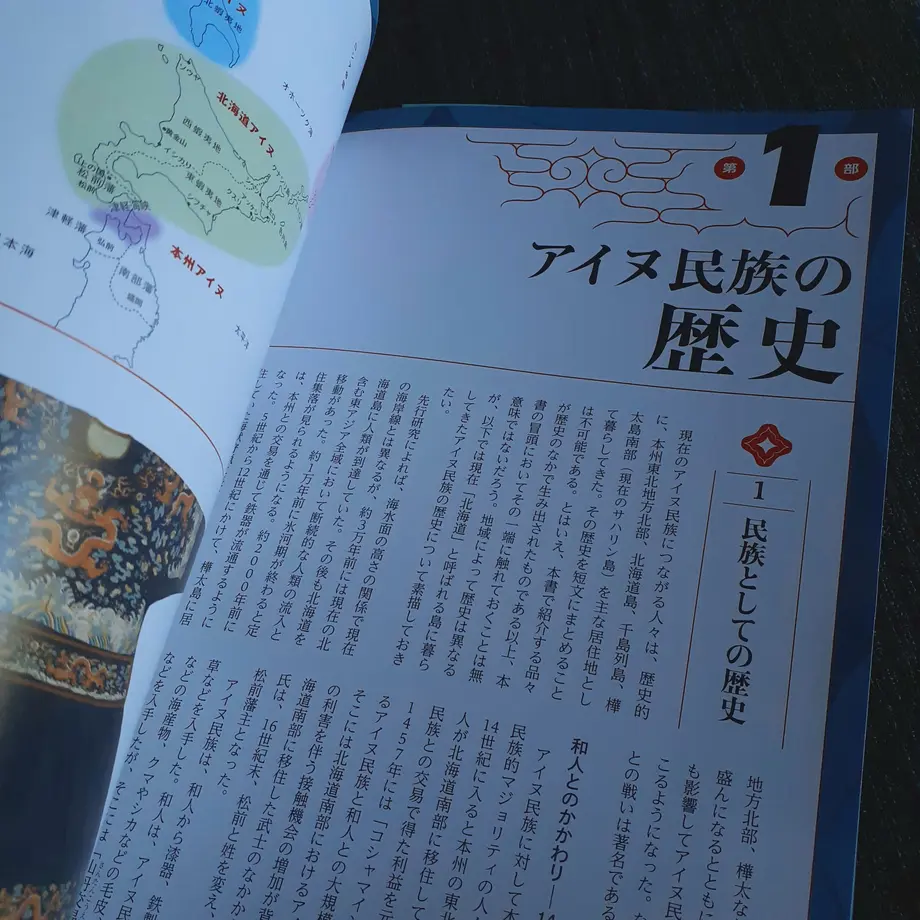 北蝦夷地
北海道アイヌ
ソウヤ
西蝦夷地
イシカリ
東蝦夷地
松前
津軽海峡
津軽藩
弘前
南部藩
盛岡
本州アイヌ
オホーツク海
本海
第1部
アイヌ民族の
歴史
1 民族としての歴史
現在のアイヌ民族につながる人々は、歴史的
に、本州東北地方北部、北海道島、千島列島、樺
太島南部（現在のサハリン島）を主な居住地とし
て暮らしてきた。その歴史を短文にまとめること
は不可能である。とはいえ、本書で紹介する品々
が歴史のなかで生み出されたものである以上、本
書の冒頭においてその一端に触れておくことは無
意味ではないだろう。地域によって歴史は異なる
が、以下では現在「北海道」と呼ばれる島に暮ら
してきたアイヌ民族の歴史について素描しておき
たい。
先行研究によれば、海水面の高さの関係で現在
の海岸線とは異なるが、約3万年前には現在の北
海道島に人類が到達していた。その後も北海道を
含む東アジア全域において断続的な人類の流入と
移動があった。約1万年前に氷河期が終わると定
住集落が見られるようになる。約2000年前に
は、本州との交易を通じて鉄器が流通するように
なった。5世紀から12世紀にかけて、樺太島に居
地方北部、樺太な
盛んになるとともに
も影響してアイヌ民
こるようになった。
との戦いは著名である
和人とのかかわり―14
アイヌ民族に対して本
民族的マジョリティの人
14世紀に入ると本州の東北
人が北海道南部に移住して
民族との交易で得た利益を元
1457年には「コシャマイン
るアイヌ民族と和人との大規模
そこには北海道南部におけるアイ
の利害を伴う接触機会の増加が背
海道南部に移住した武士のなか
氏は、16世紀末、松前と姓を変え、
松前藩主となった。
アイヌ民族は、和人から漆器、鉄製
草などを入手した。和人は、アイヌ民
などの海産物、クマやシカなどの毛皮
などを入手したが、そこには